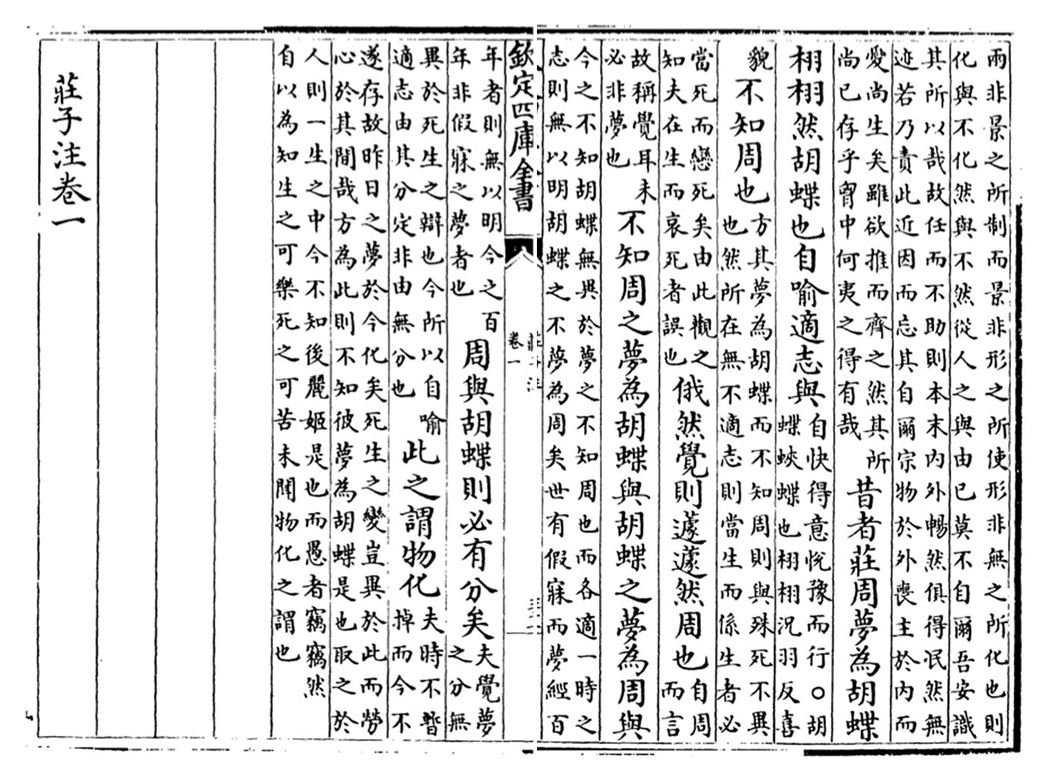 兩非景之所制而景非形之所使形非無之所化也則
化與不化然與不然從人之與由已莫不自爾吾安識
其所以哉故任而不助則本末内外暢然俱得泯然無
迹若乃責此近因而忘其自爾宗物於外喪主於内而
愛尚生矣雖欲推而齊之然其所
尚已存乎胷中何夷之得有哉
昔者莊周夢為胡蝶
栩栩然胡蝶也自喻適志與
自快得意悅豫而行○胡
蝶蛺蝶也栩栩況羽反喜
貌
不知周也
方其夢為胡蝶而不知周則與殊死不異
也然所在無不適志則當生而係生者必
當死而戀死矣由此觀之
知夫在生而哀死者誤也
俄然覺則蘧蘧然周也
自周
而言
故稱覺耳未
必非夢也
不知周之夢為胡蝶與胡蝶之夢為周與
今之不知胡蝶無異於夢之不知周也而各適一時之
志則無以明胡蝶之不夢為周矣世有假寐而夢經百
欽定四庫全書
莊子注
卷一
年者則無以明今之百
年非假寐之夢者也
周與胡蝶則必有分矣
夫覺夢
之分無
異於死生之辯也今所以自喻
適志由其分定非由無分也
此之謂物化
夫時不暫
掉而今不
遂存故昨日之夢於今化矣死生之變豈異於此而勞
心於其間哉方為此則不知彼夢為胡蝶是也取之於
人則一生之中今不知後麗姬是也而愚者竊竊然
自以為知生之可樂死之可苦未聞物化之謂也
莊子注卷一